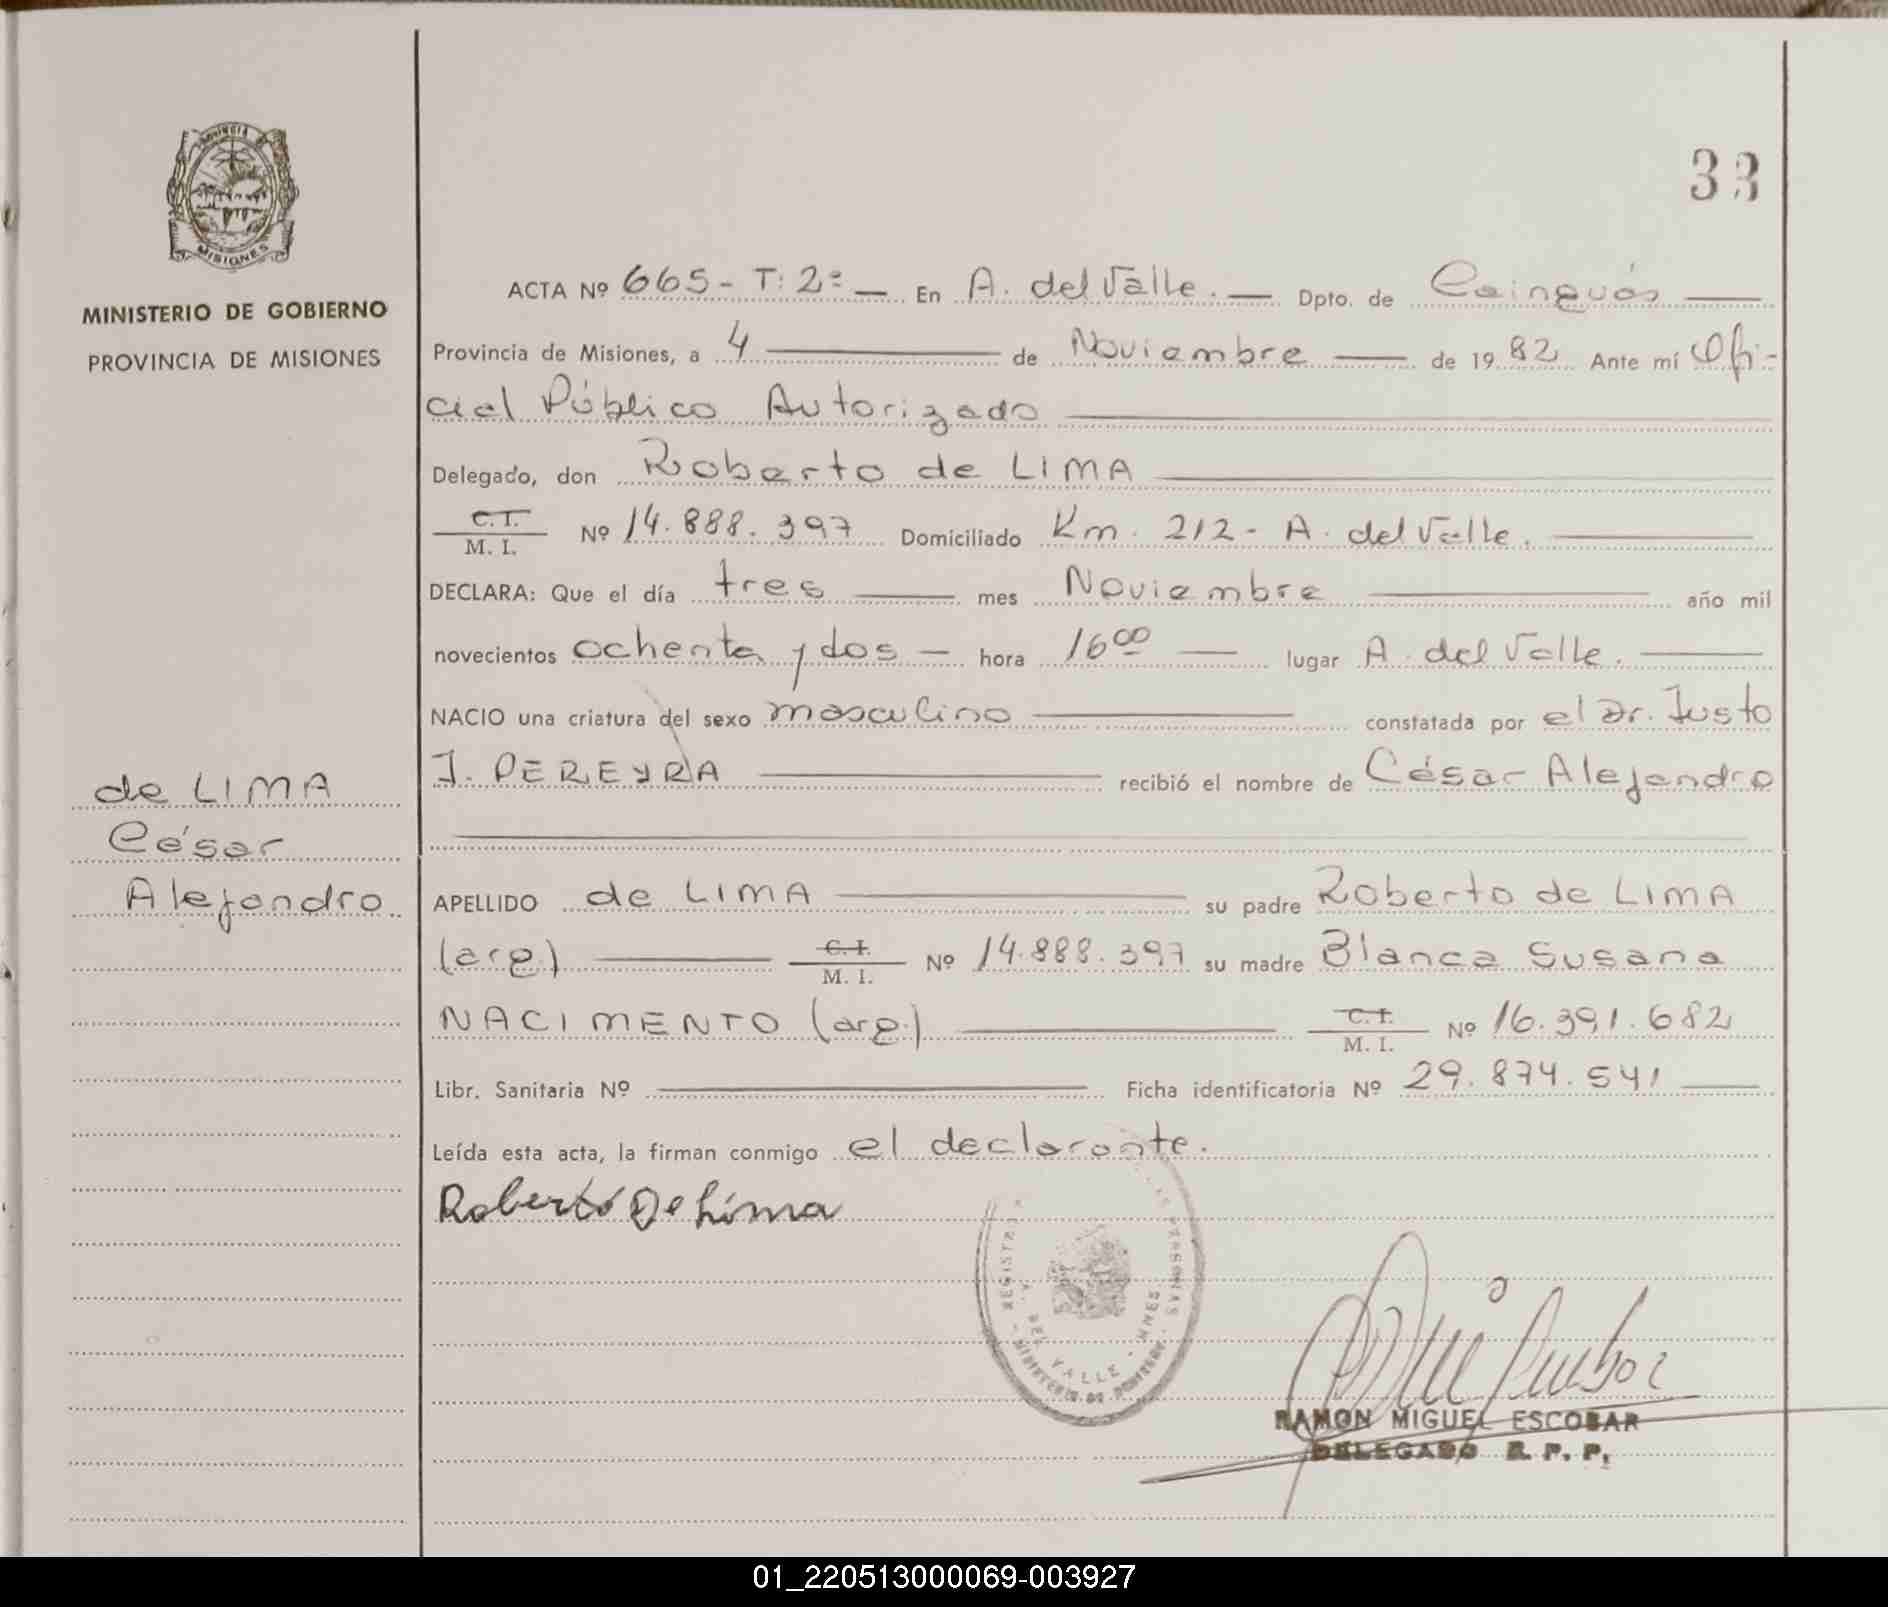 PROVINCIA DE
MISIONES
MINISTERIO DE GOBIERNO
PROVINCIA DE MISIONES
33
ACTA Nº 665 - T: 2º — En A. del Valle. — Dpto. de Cainguás —
Provincia de Misiones, a 4 — de Noviembre — de 1982 Ante mí Ofi-
cial Público Autorizado —
Delegado, don Roberto de LIMA —
C.I. M. I. Nº 14.888.397 Domiciliado Km. 212 - A. del Valle. —
DECLARA: Que el día tres — mes Noviembre — año mil
novecientos ochenta y dos — hora 16 00 — lugar A. del Valle. —
NACIO una criatura del sexo masculino — constatada por el Dr. Justo
J. PEREYRA — recibió el nombre de César Alejandro
de LIMA
César
Alejandro
APELLIDO de LIMA — su padre Roberto de LIMA
(arg.) — C.I. M. I. Nº 14.888.397 su madre Blanca Susana
NACIMENTO (arg.) — C.I. M. I. Nº 16.391.682
Libr. Sanitaria Nº — Ficha identificatoria Nº 29.874.541 —
Leída esta acta, la firman conmigo el declarante.
Roberto De Lima
REGISTRO LAS PERSONAS
A. DEL VALLE - MNES.
MINISTERIO DE GOBIERNO
RAMON MIGUEL ESCOBAR
DELEGADO R. P. P.
01_220513000069-003927